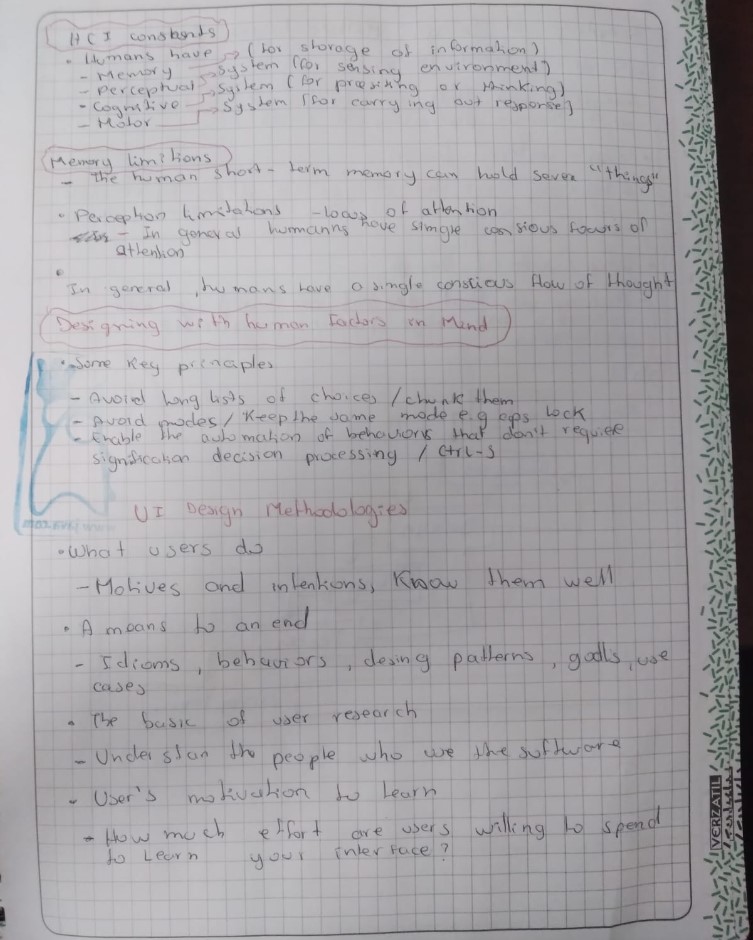 HCI constrands
• Humans have (for storage of information)
- Memory System (for sensing environment)
- Perceptual System (for procesing or thinking)
- Cognitive System (for carrying out response)
- Motor
Memory limitions
- the human short-term memory can hold seven "things"
• Perception limitations - locus of attention
- In general humanns have single consious focurs of
attention
•
In general, humans have a single constious flow of thought
Designing with human Factors in Mind
• Some Key principles
- Avoid long lists of choices / chunk them
- Avoid modes / Keep the same mode e.g caps lock
- Enable the automation of behaviors that don't requiee
signification decision processing / Ctrl-S
UI Design Methodologies
• What users do
- Motives and intentions, Know them well
• A means to an end
- Idioms, behaviors, desing patterns, goals, use
cases
• The basic of user research
- Understan the people who use the software
- User's motivation to Learn
- How much effort are users willing to spend
to Learn your interface?
VERZATIL